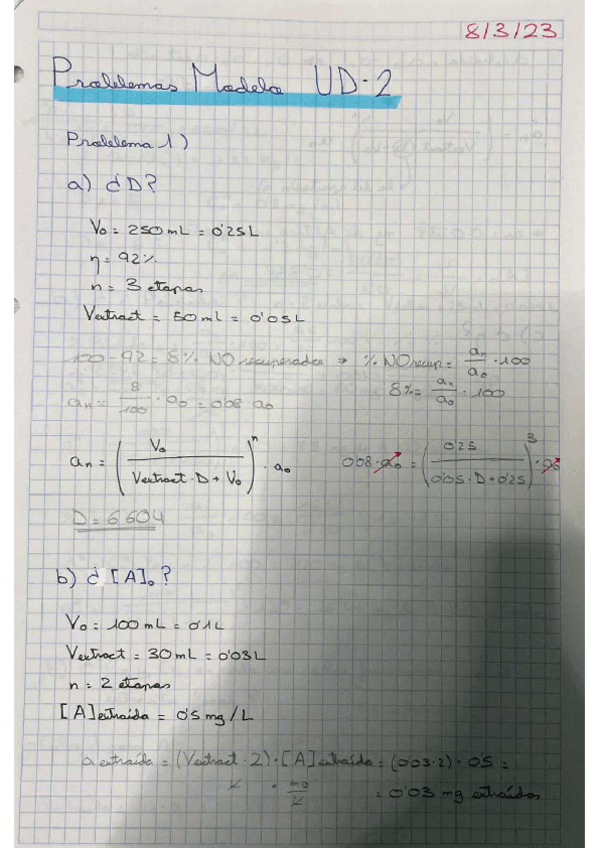 8/3/23
Problemas Modelo UD-2
Problema 1)
a) ¿D?
V₀ = 250 mL = 0'25 L
η = 92%
n = 3 etapas
Vextract = 50 mL = 0'05 L
100 - 92 = 8% NO recuperados → % NO recup = aₙ/a₀ · 100
aₙ = 8/100 · a₀ = 0'08 a₀ 8% = aₙ/a₀ · 100
aₙ = (V₀ / (Vextract · D + V₀))ⁿ · a₀ 0'08 · a₀ = (0'25 / (0'05 · D + 0'25))³ · a₀
D = 6'604
b) ¿[A]₀?
V₀ = 100 mL = 0'1 L
Vextract = 30 mL = 0'03 L
n = 2 etapas
[A]extraída = 0'5 mg/L
a extraída = (Vextract · 2) · [A]extraída = (0'03 · 2) · 0'5 =
L · mg/L = 0'03 mg extraídos